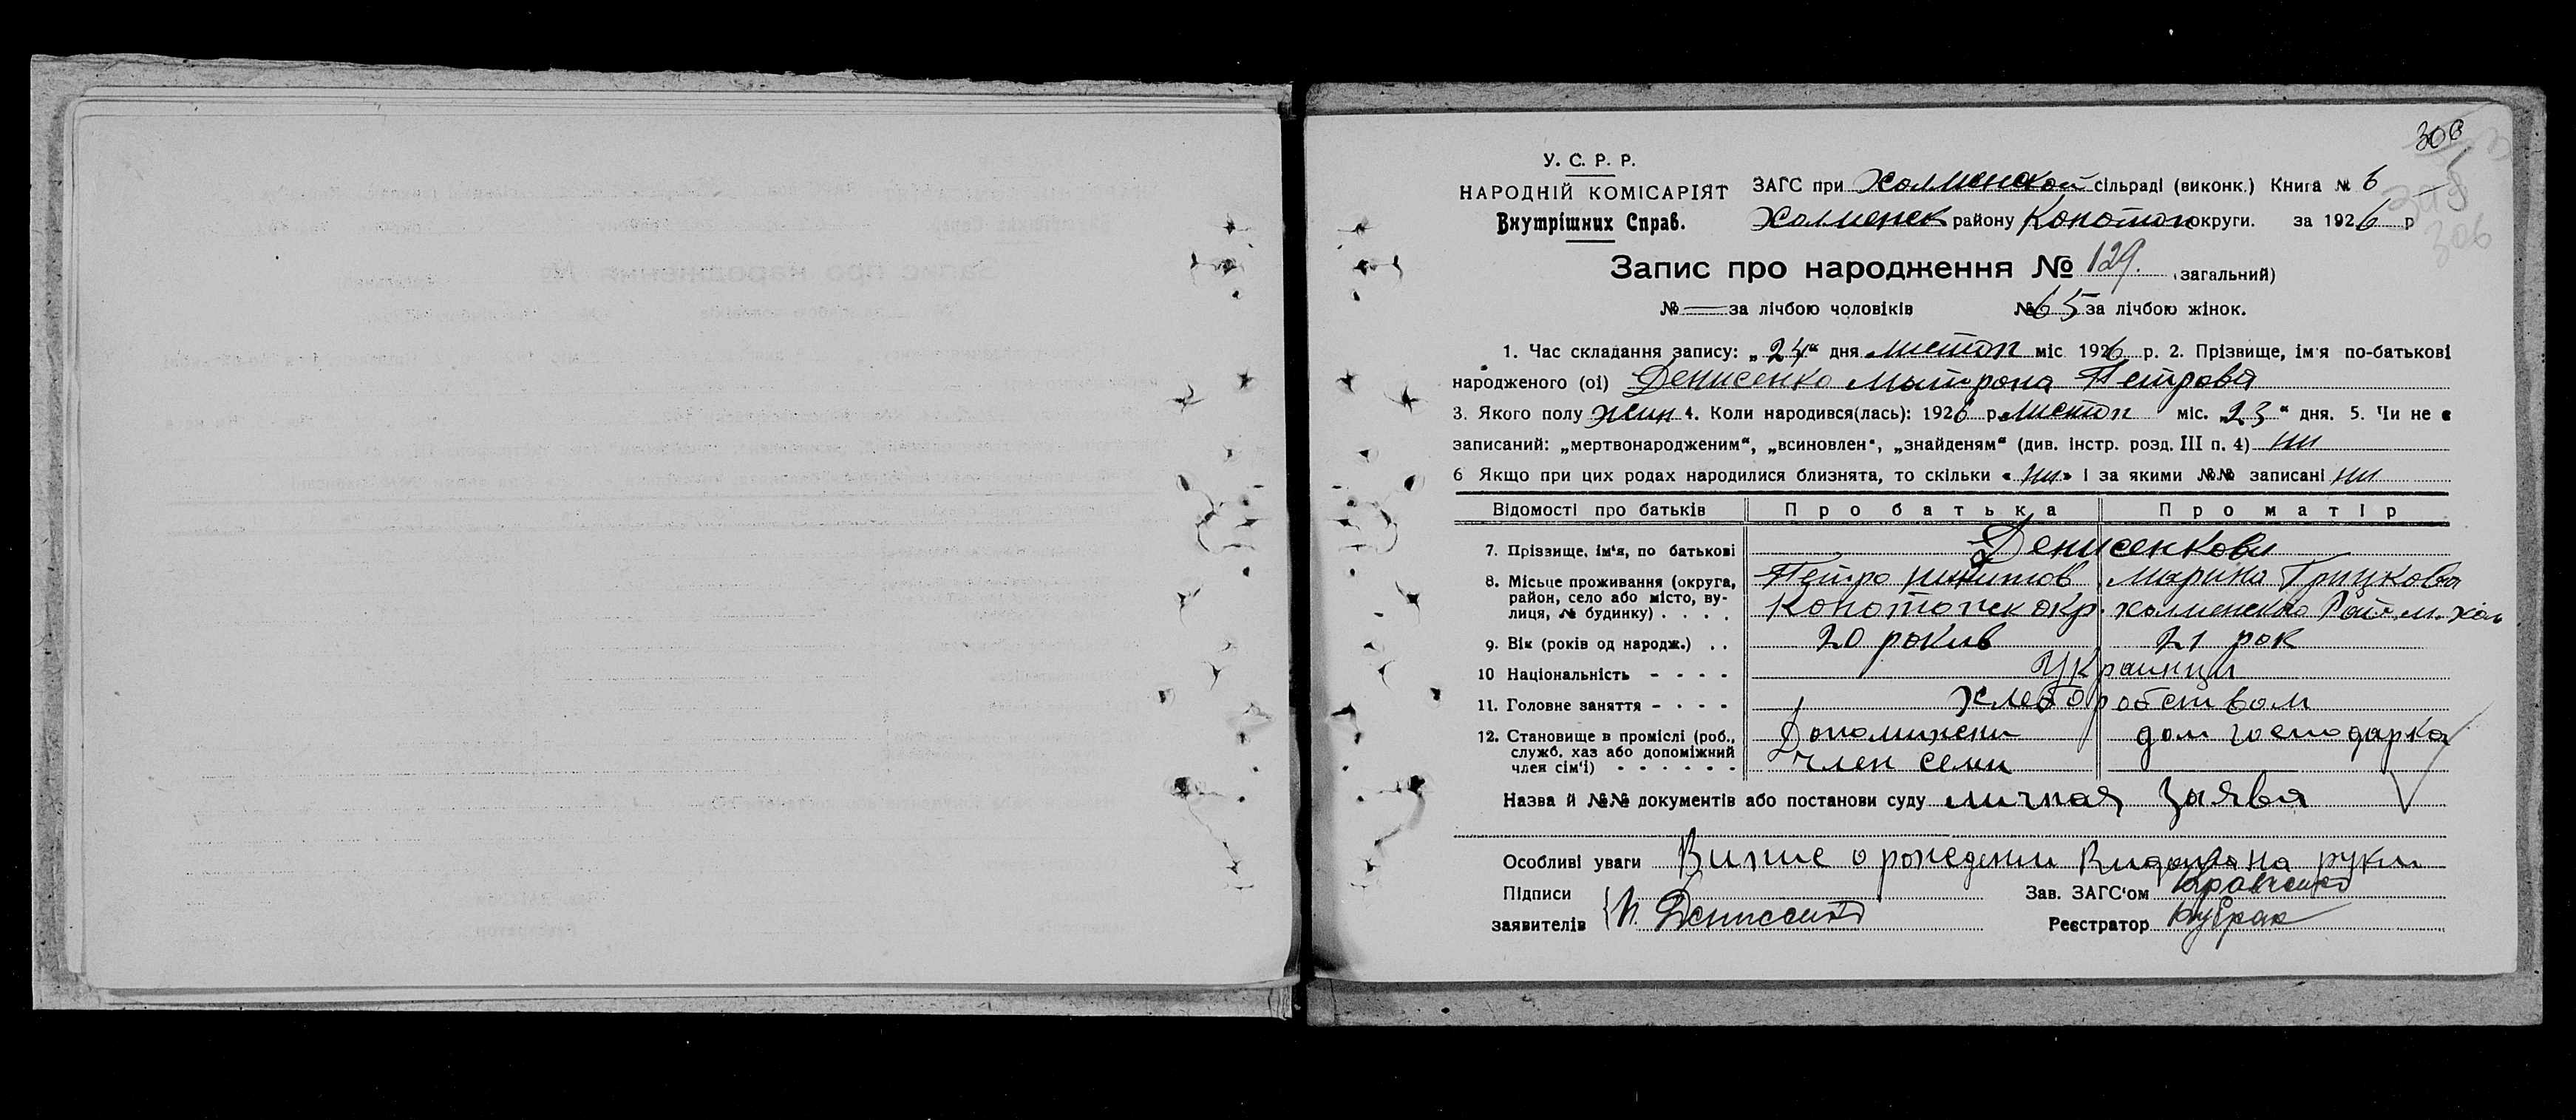 306
У. С. Р. Р.
НАРОДНІЙ КОМІСАРІЯТ
Внутрішних Справ.
ЗАГС при Холменской сільраді (виконк.) Книга № 6
Холменск району Конотоп округи. за 1926 р
306
Запис про народження № 129. (загальний)
№ — за лічбою чоловіків № 65 за лічбою жінок.
1. Час складання запису: „24“ дня листоп міс 1926 р. 2. Прізвище, ім'я по-батькові
народженого (ої) Денисенко Матрона Петрова
3. Якого полу жин 4. Коли народився(лась): 1926 р листоп міс. „23“ дня. 5. Чи не є
записаний: „мертвонародженим“, „всиновлен“, „знайденям“ (див. інстр. розд. III п. 4) ни
6 Якщо при цих родах народилися близнята, то скільки «ни» і за якими №№ записані ни
Відомості про батьків Про батька Про матір
7. Прізвище, ім'я, по батькові Денисенкови
8. Місьце проживання (округа, Петро Марина Грицкова
район, село або місто, ву- Конотопск окр. холменско Рай м. хол
лиця, № будинку) . . . .
9. Вік (років од народж.) . . 20 рокив 21 рок
10 Національність - - - - Украинци
11. Головне заняття - - - - хлеборобством
12. Становище в проміслі (роб., Допомижени дом господарка
служб. хаз або допоміжний член семи
член сім'ї) - - - - - -
Назва й №№ документів або постанови суду личная заява
Особливі уваги Випис о рождении Видана на руки
Підписи Зав. ЗАГС'ом Кравченко
заявителів П. Денисенко Реєстратор